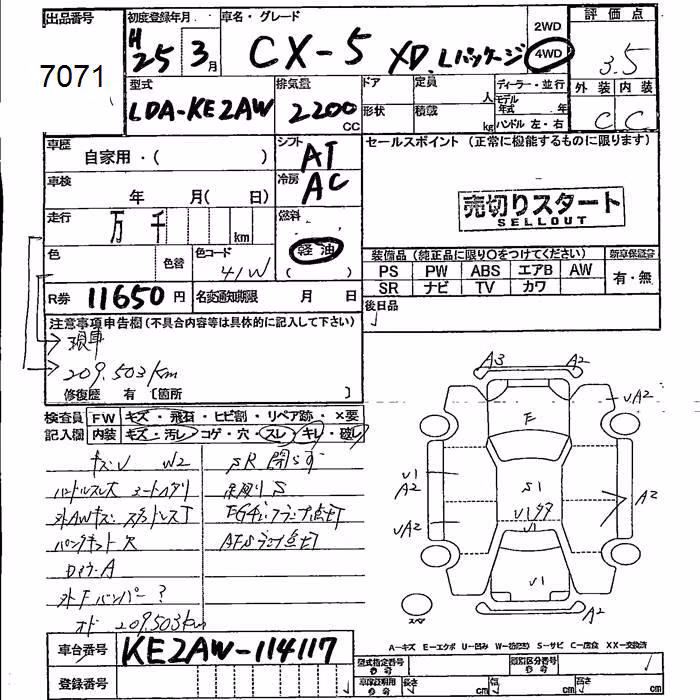 出品番号 初度登録年月 車名・グレード 2WD 評価点
7071 H25 3月 CX-5 XD Lパッケージ 4WD 3.5
型式 排気量 ドア 定員 人 ディーラー・並行 外装 内装
LDA-KE2AW 2200 CC 形状 積載 kg モデル年式 年 ハンドル 左・右 C C
車歴 自家用・( ) シフト AT セールスポイント (正常に機能するものに限ります)
車検 年 月( 日) 冷房 AC
売切りスタート
SELLOUT
走行 万 千 km 燃料 軽油
( )
色 色替 色コード 41W 装備品 (純正品に限り○をつけてください) 新車保証書
PS PW ABS エアB AW 有・無
SR ナビ TV カワ
R券 11650円 名変通知期限 月 日 後日品
注意事項申告欄 (不具合内容等は具体的に記入して下さい)
現車
209.503km
修復歴 有 〔箇所 〕
A3 A2
検査員 FW キズ・飛石・ヒビ割・リペア跡・×要
記入欄 内装 キズ・汚レ・コゲ・穴・スレ・キレ・破レ
UA2
F
キズU W2 SR閉S可
ハンドルスレ シートヘタリ
外AWキズ
パンクキット欠
外Fバンパー?
209.503km
U1
A2
UA2
S1
A2
U1
U1
A2
スペア
A-キズ E-エクボ U-凹み W-(波) S-サビ C-腐食 XX-交換済
車台番号 KE2AW-114117 型式指定番号 類別区分番号
登録番号 長さ cm 幅 cm 高さ cm